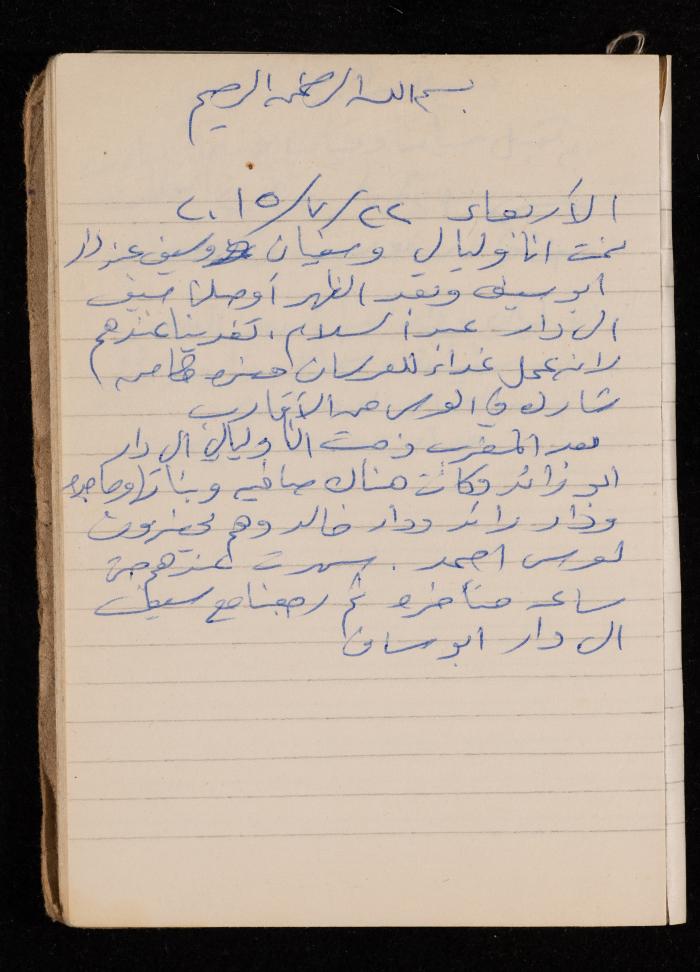 بسم الله الرحمن الرحيم
الأربعاء ٢٢/٧/٢٠١٥
نمت انا وليالي وسفيان وسيف عند دار
ابو سيف وبعد الظهر أوصلنا سيف
الى دار عبد السلام، تغدينا عندهم
لانه عمل غداء للعرسان
شارك في العرس من الأقارب
بعد المغرب ذهبت انا وليالي الى دار
ابو زائد وكانت هناك صافيه وبناتها
ودار رائد ودار خالد وهم يحضرون
لعرس احمد. سهرت عندهم حتى
ساعه متأخره ثم رجعنا مع سيف
الى دار ابو ساف